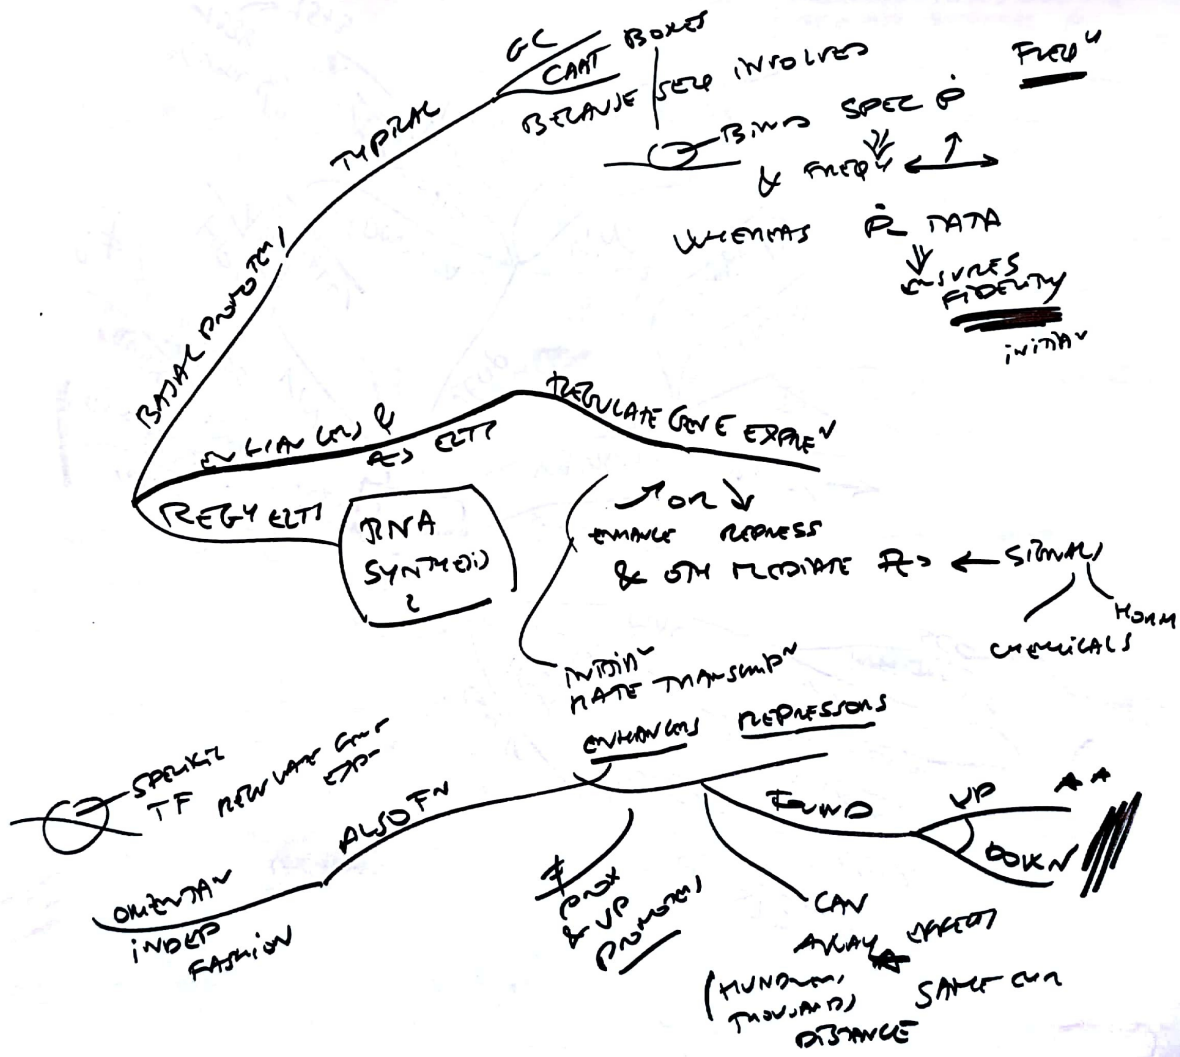 GC
CAAT BOXES
TYPICAL
BECAUSE SEQ INVOLVED
BIND SPEC P
FREQ Y
& FREQ Y
WHEREAS P TATA
ENSURES
FIDELITY
INITIA N
BASAL PROMOTER
ENHANCERS &
RES ELTS
REGULATE GENE EXPRE N
REGY ELTS
RNA
SYNTHESIS
OR
ENHANCE REPRESS
& OTH MEDIATE RES
SIGNALS
HORM
CHEMICALS
INITIA N
RATE TRANSCRIP N
ENHANCERS REPRESSORS
SPECIFIC
TF REGULATE GENE
EXP
ALSO F N
ORIENTA N
INDEP
FASHION
≠
PROX
& UP
PROMOTERS
FOUND
UP
DOWN
CAN
EFFECT
(HUNDREDS
THOUSANDS
DISTANCE
SAME CHR